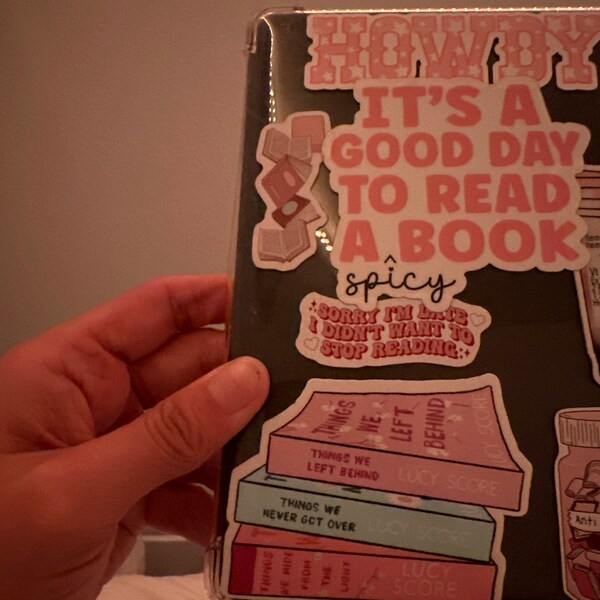 HOWDY
IT'S A
GOOD DAY
TO READ
A BOOK
^
spicy
SORRY I'M LATE
I DIDN'T WANT TO
STOP READING
THINGS
WE
LEFT
BEHIND
LUCY SCORE
THINGS WE
LEFT BEHIND
LUCY SCORE
THINGS WE
NEVER GOT OVER
LUCY SCORE
THINGS
WE HIDE
FROM
THE
LIGHT
LUCY
SCORE
Anti